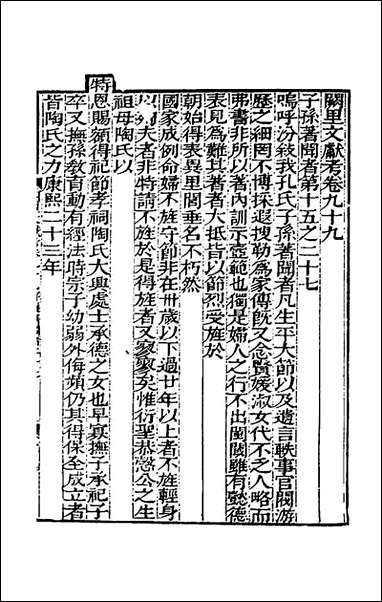 闕里文獻考卷九十九
子孫著聞者第十五之二十七
嗚呼汾敘我孔氏子孫著聞者凡生平大節以及遺言軼事官閥游
歷之細罔不博採遐搜勒為家傳旣又念賢媛淑女代不乏人略而
弗書非所以著內訓示壼範也獨是婦人之行不出閨閫雖有懿德
表見為難其著者大抵皆以節烈受旌於
朝始得表異里閭垂名不朽然
國家成例命婦不旌守節非在卅歲以下過廿年以上者不旌輕身
以夫者非特請不旌於是得旌者又寥寥矣惟衍聖恭愨公之生
祖母陶氏以
特恩賜額得祀節孝祠陶氏大興處士承德之女也早寡撫子承祀子
卒又撫孫敎育動有經法時宗子幼弱外侮頻仍其得保全成立者
皆陶氏之力康熙二十三年